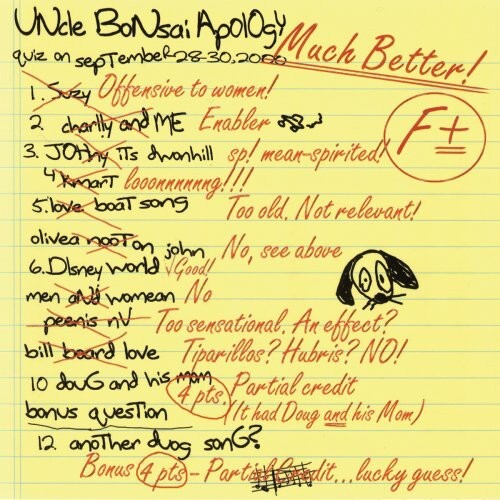 UNcle BoNsai ApolOgy
Much Better!
quiz on sepTember 28-30, 2000
F±
1. Suzy Offensive to women!
2 charlly and ME Enabler
3. JOthy iTs dwonhill sp! mean-spirited!
4 Kmart looonnnnnng!!!
5. love boaT song Too old. Not relevant!
olivea nooTon john No, see above
6. DIsney world √Good!
men aNd womean No
peenis nV Too sensational. An effect?
bill board love Tiparillos? Hubris? NO!
10 douG and his mom 4 pts Partial credit
bonus quesTion (It had Doug and his Mom)
12. anoTher duog sonG?
Bonus 4 pts - Partial Credit...lucky guess!